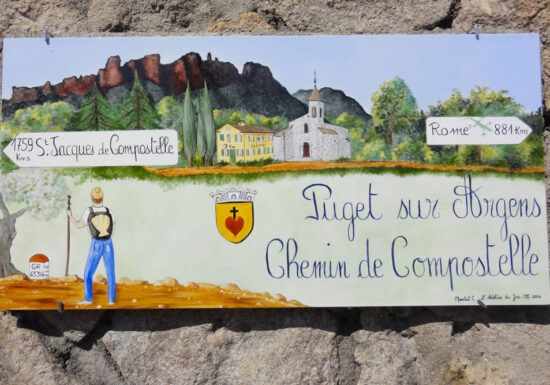 1759 Kms St Jacques de Compostelle
Rome 881 Kms
Puget sur Argens
Chemin de Compostelle
GR